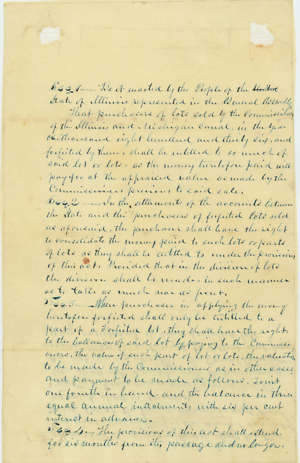 Sec 1. Be it enacted by the People of the United
State of Illinois represented in the General Assembly
That purchasers of lots sold by the Commissioners
of the Illinois and Michigan Canal, in the year
one thousand eight hundred and thirty six, and
forfeited by them, shall be entitled to so much of
said lot or lots, as the money heretofore paid will
pay for at the appraised value as made by the
Commissioners previous to said sale.
Sec 2 — In the settlement of the accounts between
the State and the purchasers of forfeited lots sold
as aforesaid, the purchaser shall have the right
to consolidate the money paid to such lots or parts
of lots as they shall be entitled to under the provisions
of this act. Provided that in the division of lots
the division shall be made in such manner
as to take as much rear as front.
Sec 3 — When purchasers in applying the money
heretofore forfeited shall only be entitled to a
part of a forfeited lot, they shall have the right
to the ballance of said lot by paying to the Commissi-
oners, the value of such part of lot or lots, the valuation
to be made by the Commissioners as in other cases
and payment to be made as follows. Viz. One
fourth in hand and the balance in three
equal annual instalments, with six per cent
interest in advance.
Sec 4. The provisions of this act shall extend
for six months from the passage and no longer.